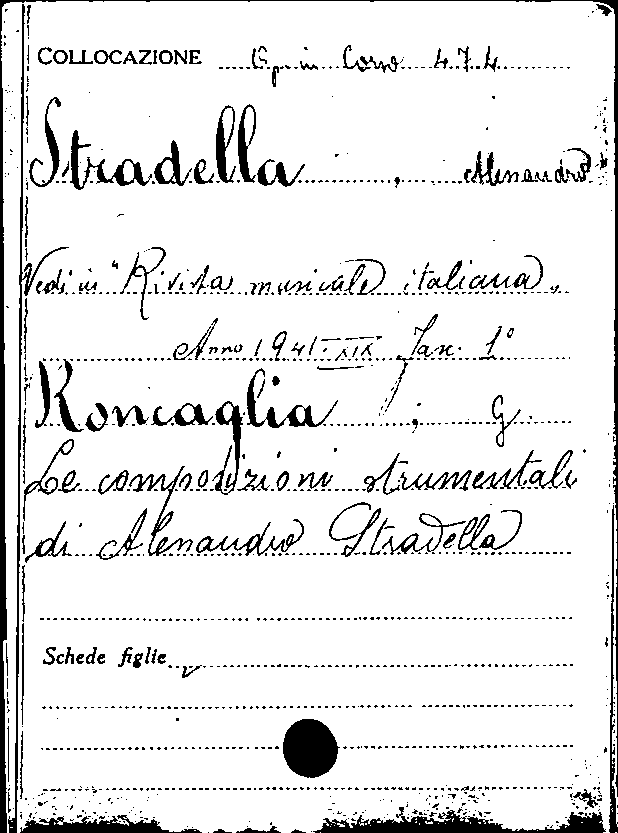 COLLOCAZIONE Op. in Corso 474
Stradella, Alessandro
Vedi in "Rivista musicale italiana"
Anno 1941-XIX Fasc. 1°
Roncaglia; G.
Le composizioni strumentali
di Alessandro Stradella
Schede figlie